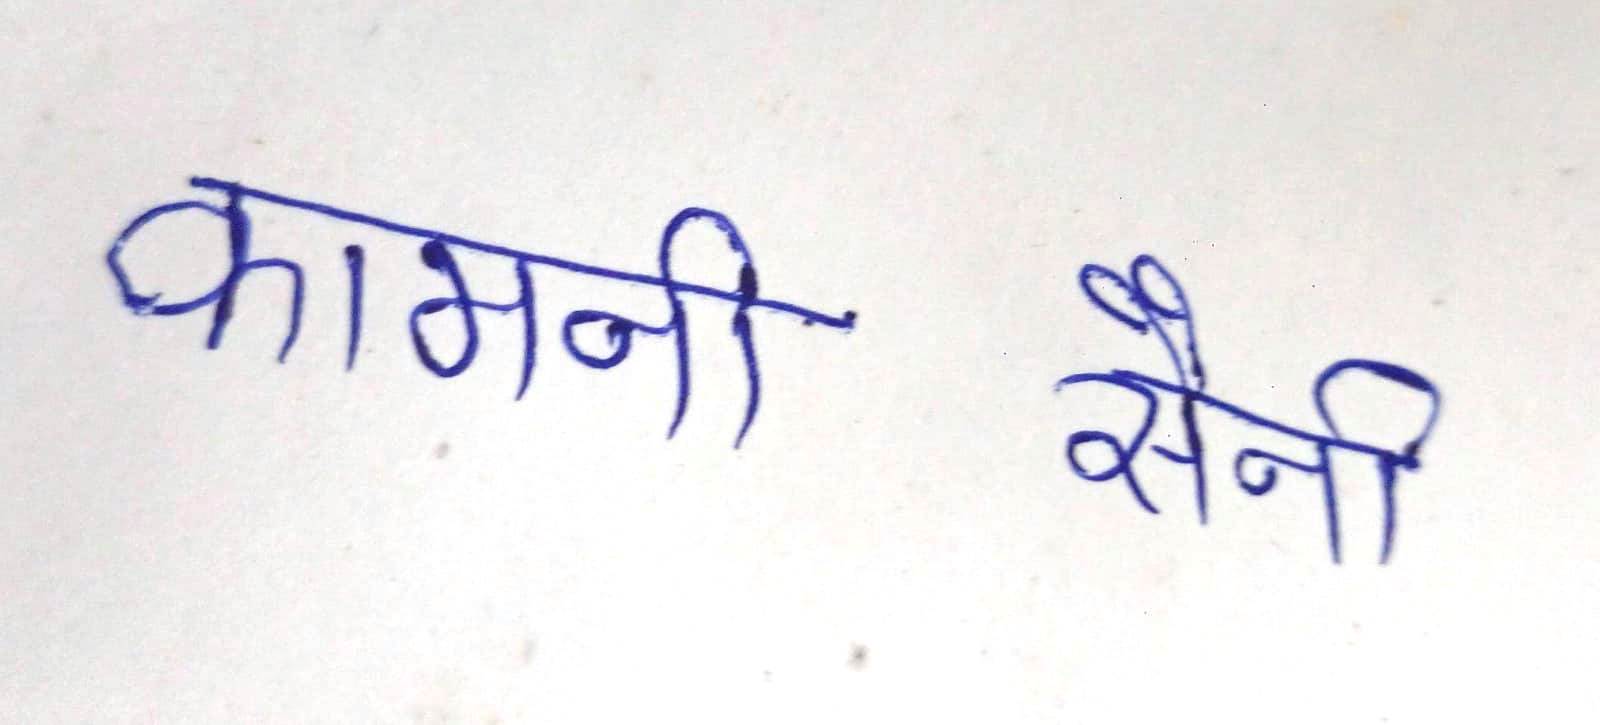 कामनी सैनी